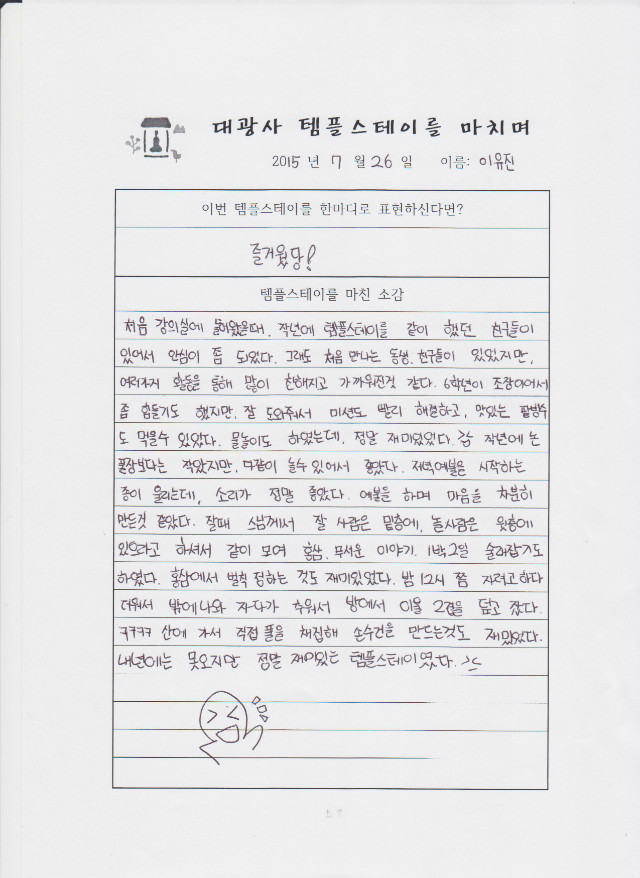 대광사 템플스테이를 마치며
2015 년 7 월 26 일 이름: 이유진
이번 템플스테이를 한마디로 표현하신다면?
즐거웠당!
템플스테이를 마친 소감
처음 강의실에 들어왔을때, 작년에 템플스테이를 같이 했던 친구들이
있어서 안심이 좀 되었다. 그래도 처음 만나는 동생, 친구들이 있었지만,
여러가지 활동을 통해 많이 친해지고 가까워진것 같다. 6학년이 조장이어서
좀 힘들기도 했지만, 잘 도와줘서 미션도 빨리 해결하고, 맛있는 팥빙수
도 먹을수 있었다. 물놀이도 하였는데, 정말 재미있었다. 작년에 논
풀장보다는 작았지만, 다같이 놀수 있어서 좋았다. 저녁예불을 시작하는
종이 울리는데, 소리가 정말 좋았다. 예불을 하며 마음을 차분히
만든것 같았다. 잘때 스님께서 잘 사람은 밑층에, 놀사람은 윗층에
있으라고 하셔서 같이 모여 홍삼, 무서운 이야기, 1박2일 술래잡기도
하였다. 홍삼에서 벌칙 정하는 것도 재미있었다. 밤 12시 쯤 자려고 하다
더워서 밖에 나와 자다가 추워서 방에서 이불 2겹을 덮고 잤다.
ㅋㅋㅋㅋ 산에 가서 직접 풀을 채집해 손수건을 만드는것도 재밌었다.
내년에는 못오지만 정말 재미있는 템플스테이였다. ><